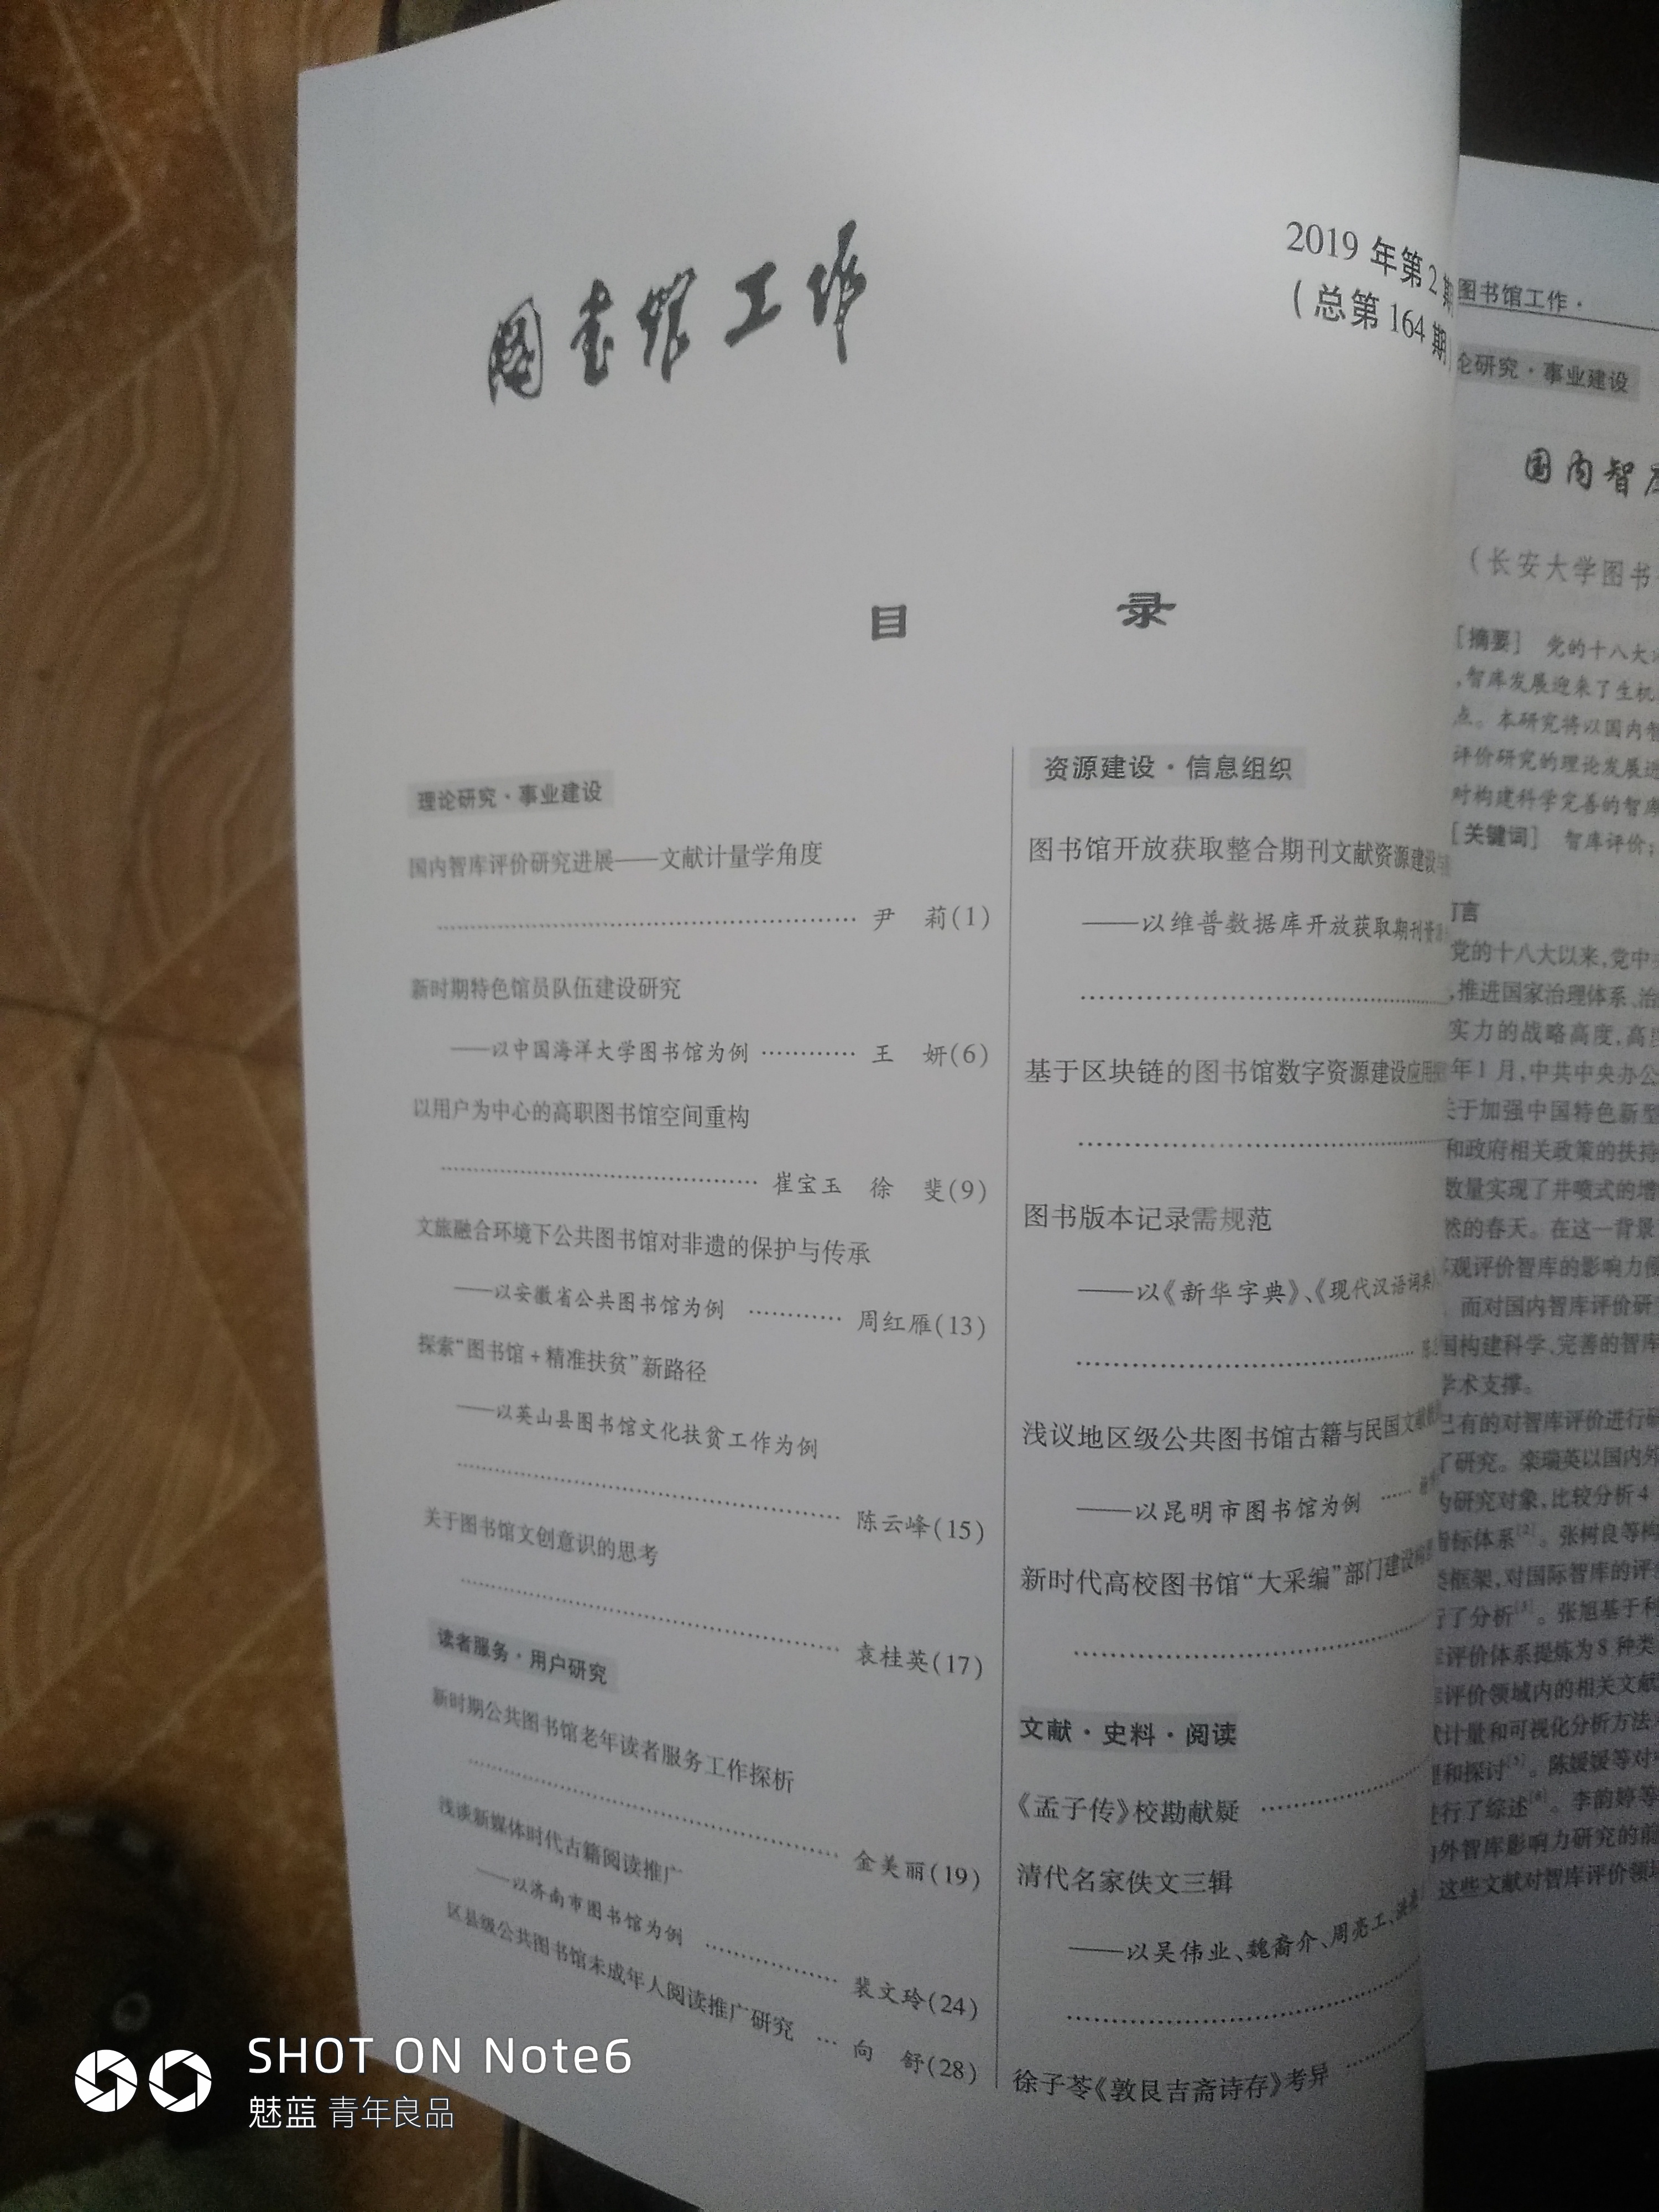 图书馆工作
2019 年第 2 期
(总第 164 期
目 录
理论研究·事业建设
国内智库评价研究进展——文献计量学角度
尹 莉(1)
新时期特色馆员队伍建设研究
——以中国海洋大学图书馆为例 ………… 王 妍(6)
以用户为中心的高职图书馆空间重构
崔宝玉 徐 斐(9)
文旅融合环境下公共图书馆对非遗的保护与传承
——以安徽省公共图书馆为例 ………… 周红雁(13)
探索“图书馆+精准扶贫”新路径
——以英山县图书馆文化扶贫工作为例
陈云峰(15)
关于图书馆文创意识的思考
袁桂英(17)
读者服务·用户研究
新时期公共图书馆老年读者服务工作探析
金美丽(19)
浅谈新媒体时代古籍阅读推广
——以济南市图书馆为例 ………… 裴文玲(24)
区县级公共图书馆未成年人阅读推广研究 … 向 舒(28)
资源建设·信息组织
图书馆开放获取整合期刊文献资源建设
——以维普数据库开放获取期刊资
基于区块链的图书馆数字资源建设应用
图书版本记录需规范
——以《新华字典》、《现代汉语词典》
浅议地区级公共图书馆古籍与民国文献
——以昆明市图书馆为例 ……
新时代高校图书馆“大采编”部门建设
文献·史料·阅读
《孟子传》校勘献疑 …………
清代名家佚文三辑
——以吴伟业、魏裔介、周亮工、
徐子苓《敦艮吉斋诗存》考异 …………
图书馆工作·
论研究·事业建设
国内智库
(长安大学图书
[摘要] 党的十八大
,智库发展迎来了生机
点。本研究将以国内智
评价研究的理论发展进
时构建科学完善的智库
[关键词] 智库评价;
言
党的十八大以来,党中
,推进国家治理体系、治
实力的战略高度,高度
年 1 月,中共中央办公
关于加强中国特色新型
和政府相关政策的扶持
数量实现了井喷式的增
然的春天。在这一背景
观评价智库的影响力
而对国内智库评价研
国构建科学,完善的智库
学术支撑。
已有的对智库评价进行研
了研究。栾瑞英以国内外
为研究对象,比较分析 4
指标体系[2]。张树良等构
类框架,对国际智库的评
行了分析[3]。张旭基于利
评价体系提炼为 8 种类
评价领域内的相关文献
计量和可视化分析方法
理和探讨[5]。陈媛媛等对
进行了综述[6]。李韵婷等
外智库影响力研究的前
这些文献对智库评价领域
SHOT ON Note6
魅蓝 青年良品